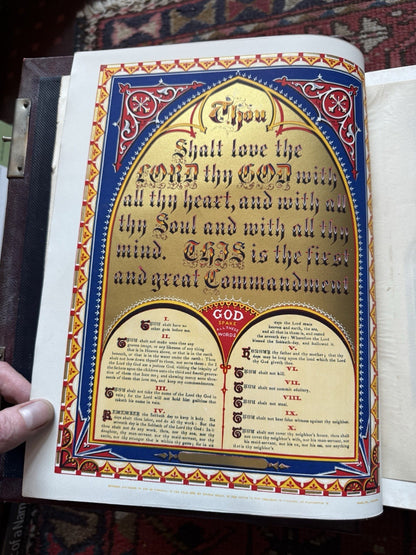 Thou
Shalt love the
LORD thy GOD with
all thy heart, and with
all thy Soul and with all thy
mind. THIS is the first
and great Commandment
GOD
SPAKE
ALL THESE
WORDS
I.
THOU shalt have no
other gods before me.
II.
THOU shalt not make unto thee any
graven image, or any likeness of any thing
that is in Heaven above, or that is in the earth
beneath, or that is in the water under the earth: Thou
shalt not bow down thyself to them, nor serve them: for
I the Lord thy God am a jealous God, visiting the iniquity of
the fathers upon the children unto the third and fourth generation
of them that hate me; and shewing mercy unto thousands
of them that love me, and keep my commandments.
III.
THOU shalt not take the name of the Lord thy God in
vain; for the Lord will not hold him guiltless that
taketh his name in vain.
IV.
REMEMBER the Sabbath day to keep it holy. Six
days shalt thou labor, and do all thy work: But the
seventh day is the Sabbath of the Lord thy God: in it
thou shalt not do any work, thou, nor thy son, nor thy
daughter, thy man servant, nor thy maid servant, nor thy
cattle, nor thy stranger that is within thy gates: for in six
days the Lord made
heaven and earth, the sea,
and all that in them is, and rested
the seventh day: Wherefore the Lord
blessed the Sabbath-day, and hallowed it.
V.
HONOUR thy father and thy mother; that thy
days may be long upon the land which the Lord thy
God giveth thee.
VI.
THOU shalt not kill.
VII.
THOU shalt not commit adultery.
VIII.
THOU shalt not steal.
IX.
THOU shalt not bear false witness against thy neighbor.
X.
THOU shalt not covet thy neighbor's house, thou shalt
not covet thy neighbor's wife, nor his man servant, nor
his maid servant, nor his ox, nor his ass, nor anything
that is thy neighbor's.
of a Nam